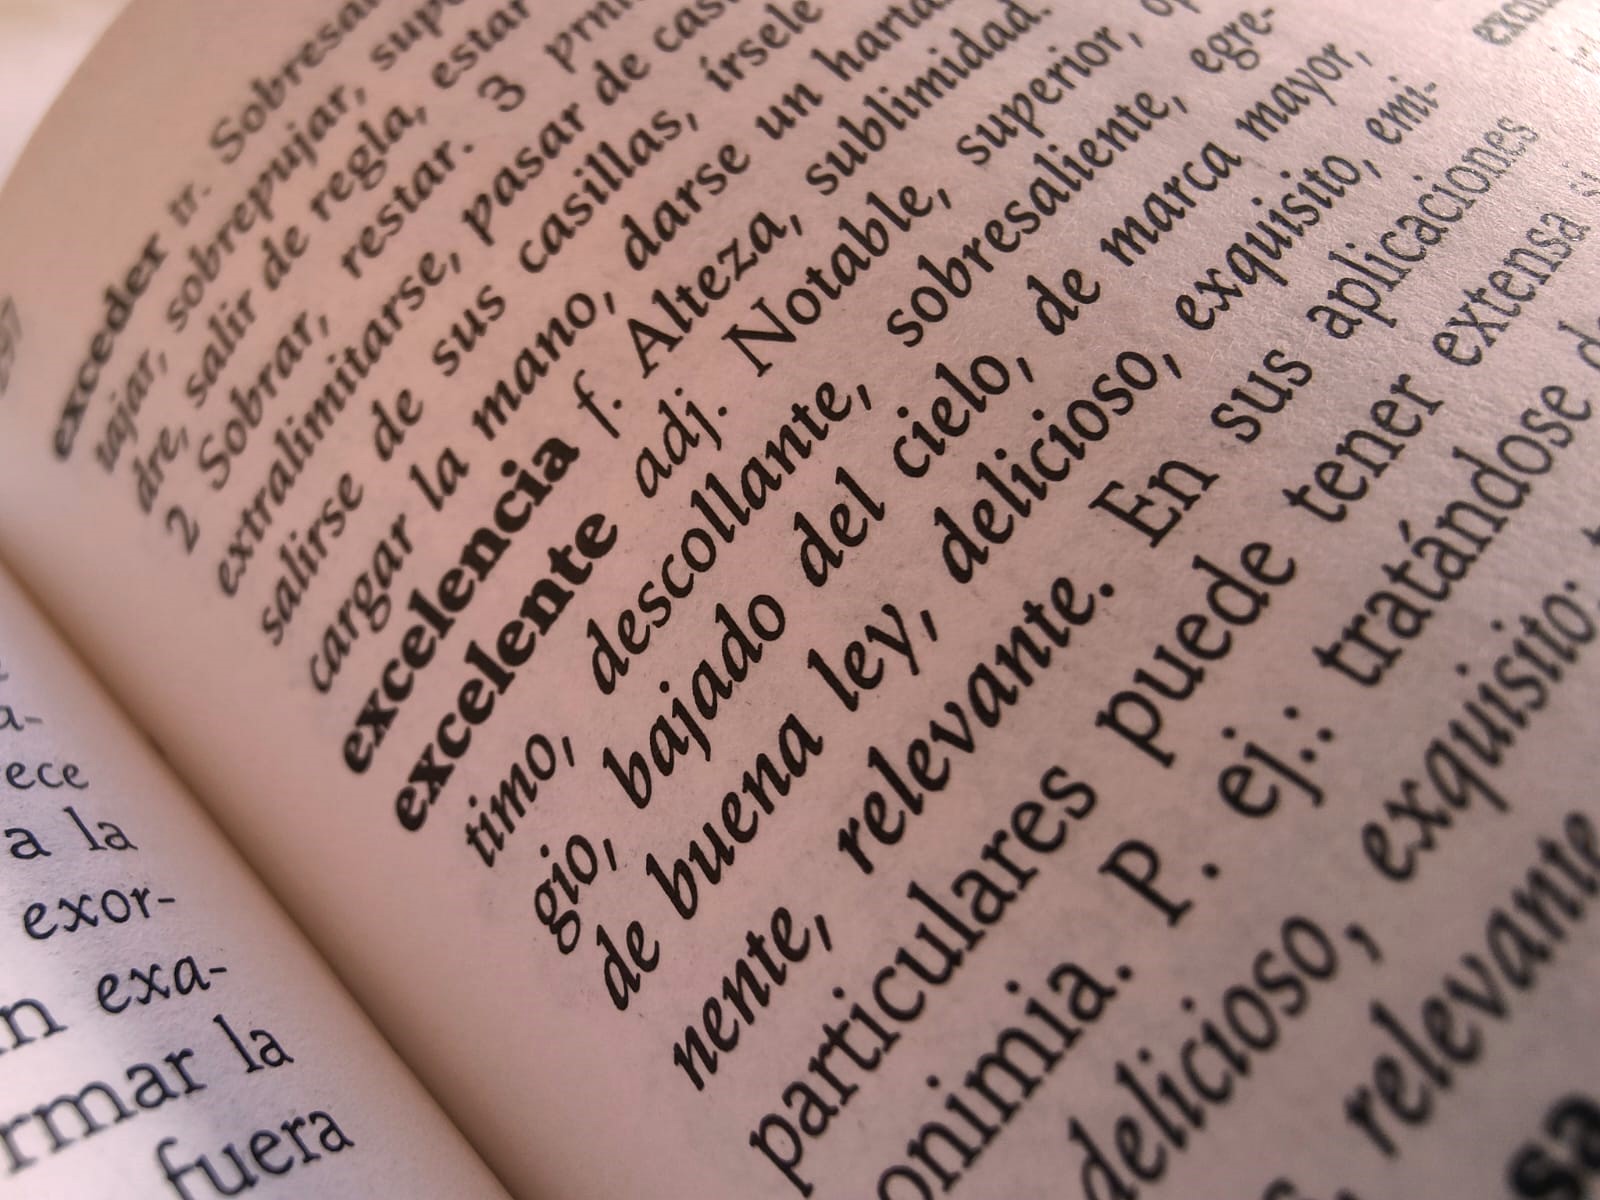 a-
ece
a la
exor-
n exa-
rmar la
fuera
exceder tr. Sobresa
vajar, sobrepujar, sup
dre, salir de regla, estar
2 Sobrar, restar. 3 prnl
extralimitarse, pasar de cas
salirse de sus casillas, írsele
cargar la mano, darse un harta
excelencia f. Alteza, sublimidad.
excelente adj. Notable, superior, óp
timo, descollante, sobresaliente, egre-
gio, bajado del cielo, de marca mayor,
de buena ley, delicioso, exquisito, emi-
nente, relevante. En sus aplicaciones
particulares puede tener extensa si
onimia. P. ej.: tratándose d
delicioso, exquisito;
relevante
sa